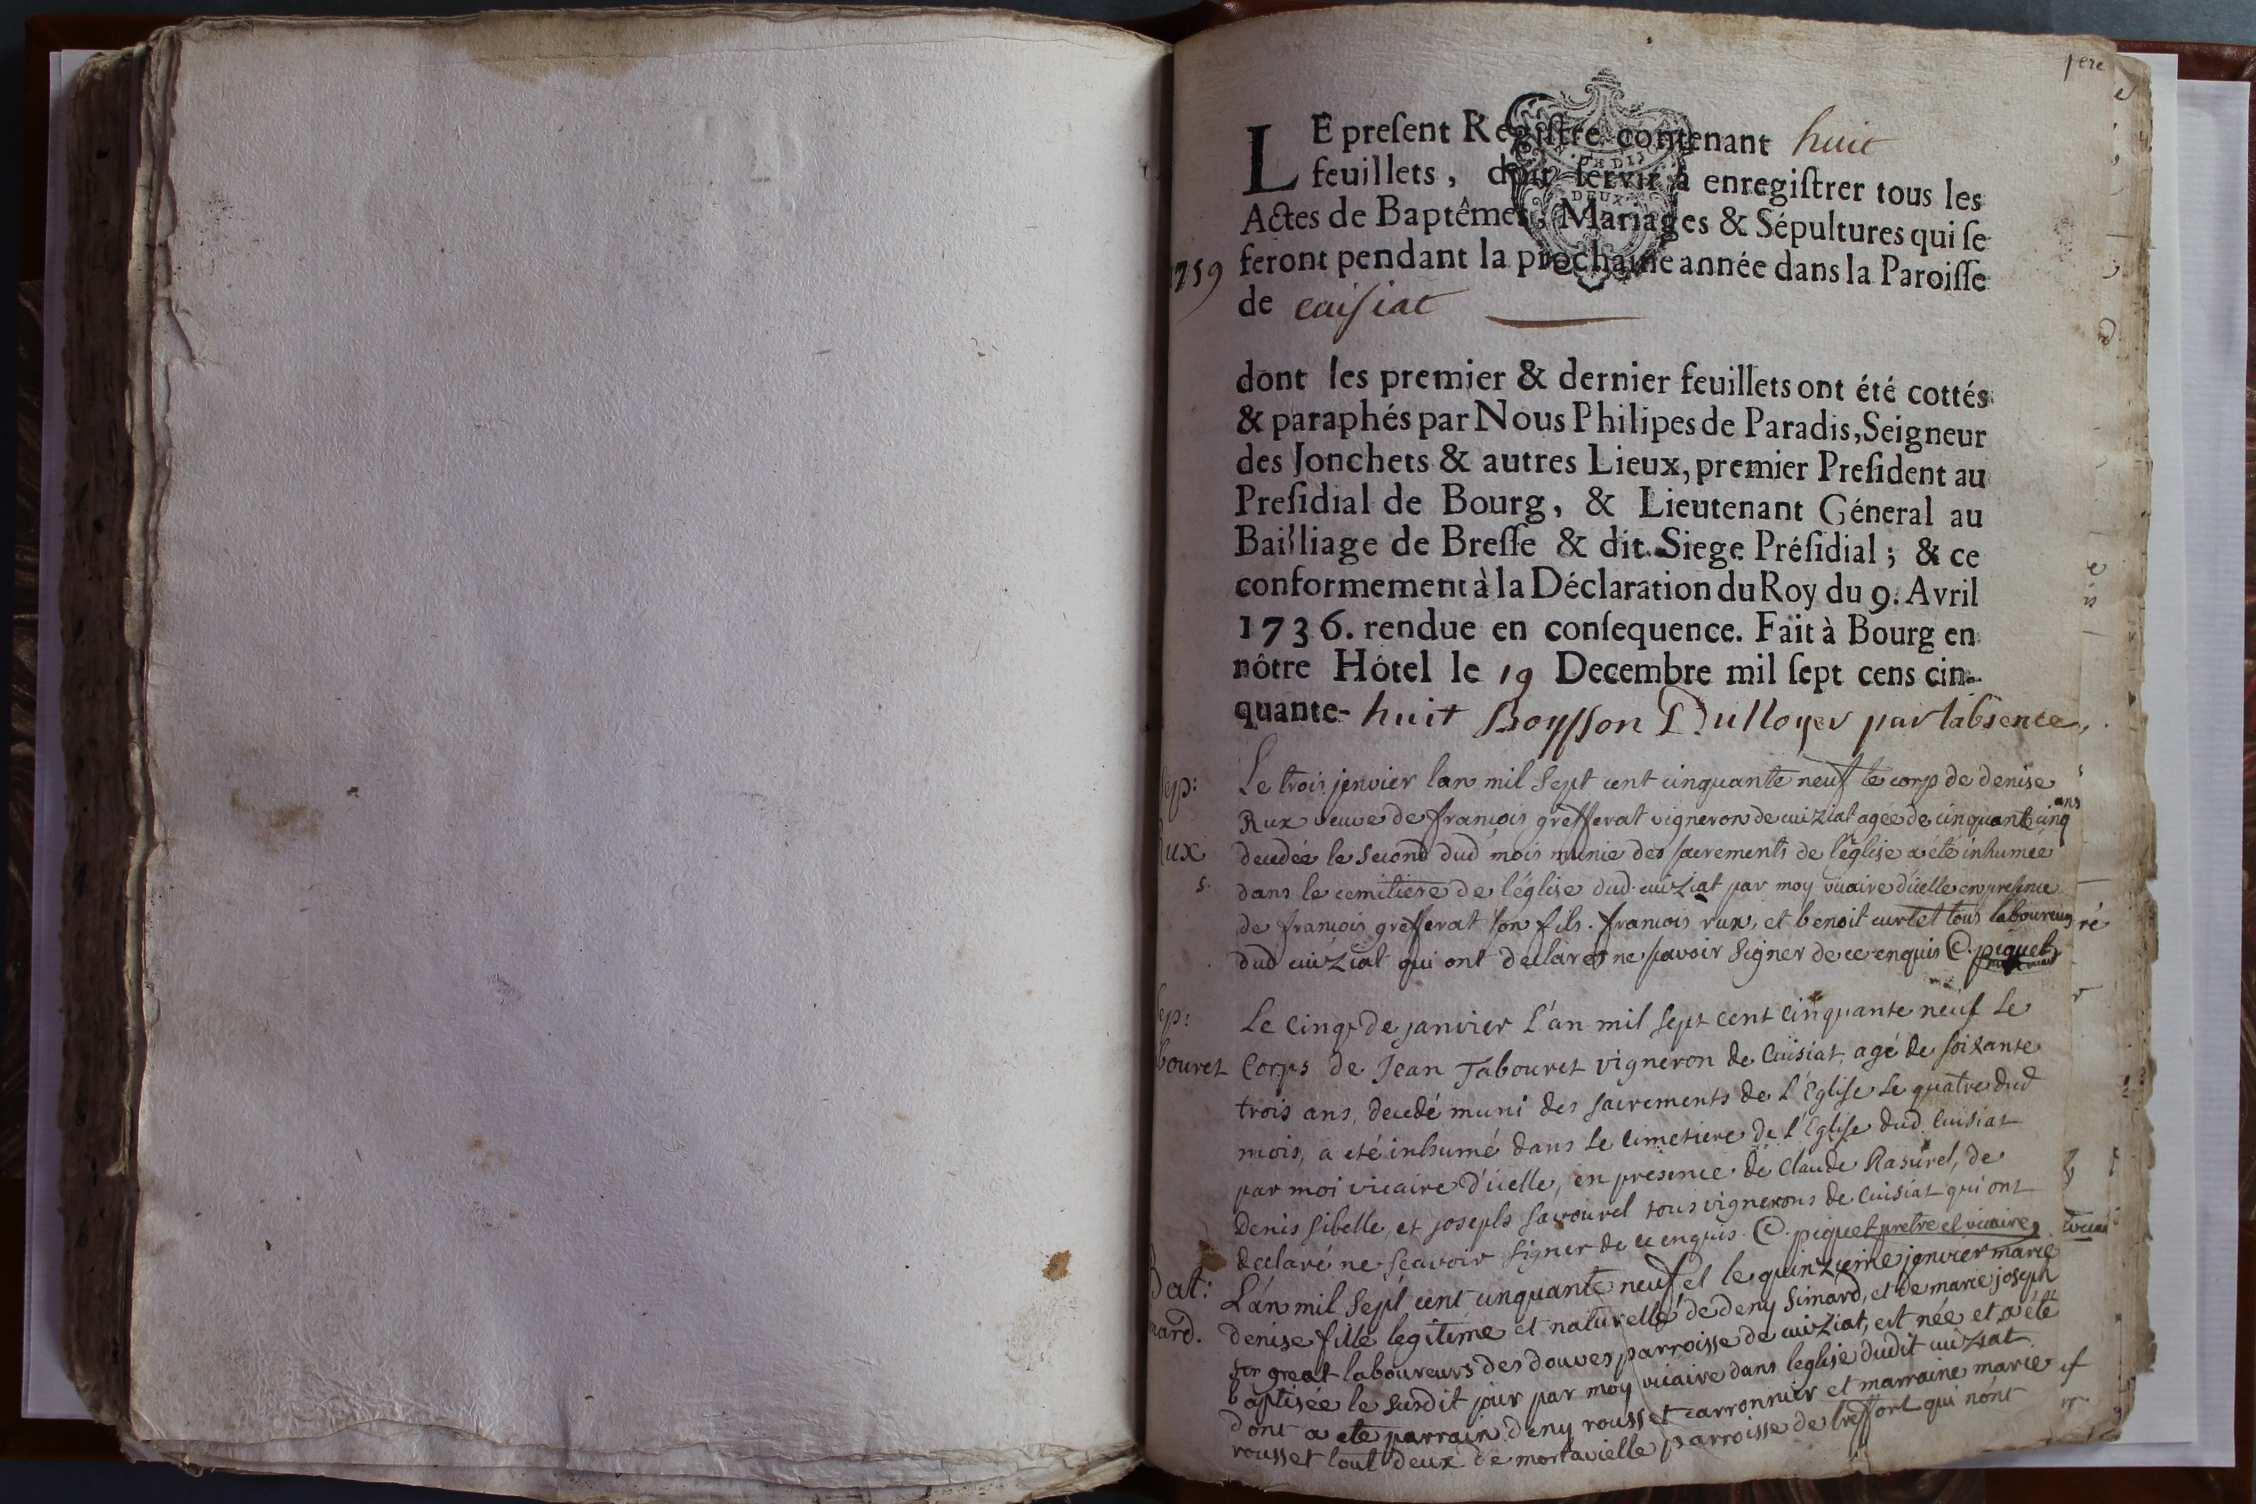 1ere
LE preſent Regiſtre contenant huit
feuillets, doit ſervir à enregiſtrer tous les
Actes de Baptêmes, Mariages & Sépultures qui ſe
1759
feront pendant la prochaine année dans la Paroiſſe
de cuisiat
dont les premier & dernier feuillets ont été cottés
& paraphés par Nous Philipes de Paradis, Seigneur
des Jonchets & autres Lieux, premier Preſident au
Preſidial de Bourg, & Lieutenant Géneral au
Bailliage de Breſſe & dit Siege Préſidial ; & ce
conformement à la Déclaration du Roy du 9. Avril
1736. rendue en conſequence. Fait à Bourg en
nôtre Hôtel le 19 Decembre mil ſept cens cin-
quante- huit Boysson Dulloyer par labsence
Sep:
Rux
Le trois jenvier lan mil sept cent cinquante neuf le corp de denise
Rux veuve de francois grefferat vigneron de cuiziat agée de cinquante cinq ans
decedée le second dud mois munie des sacrements de l'église a été inhumée
dans le cemitiere de l'église dud. cuiziat par moy vicaire d'icelle en presence
de francois grefferat son fils. francois rux, et benoit curtet tous laboureurs
dud cuiziat qui ont declarés ne savoir signer de ce enquis C. piquet
Sep:
bouret
Le cinq de janvier l'an mil sept cent cinquante neuf le
Corps de Jean Tabouret vigneron de Cuisiat agé de soixante
trois ans, decedé muni des sacrements de l'Eglise le quatre dud
mois, a eté inhumé dans le cimetiere de l'Eglise dud. Cuisiat
par moi vicaire d'icelle, en presence de Claude Rasurel, de
Denis Sibelle, et joseph savourel tous vignerons de Cuisiat qui ont
declaré ne scavoir signer de ce enquis. C. piquet pretre et vicaire
Bat:
mard.
L'an mil sept cent cinquante neuf et le quinzieme jenvier marie
denise fille legitime et naturelle de deny simard, et de marie joseph
great laboureurs des douves parroisse de cuiziat, est née et a été
baptisée le susdit jour par moy vicaire dans l'eglise dudit cuiziat
dont a ete parrain deny rousset carronnier et marraine marie
rousset tout deux de montavielle parroisse de treffort qui n'ont